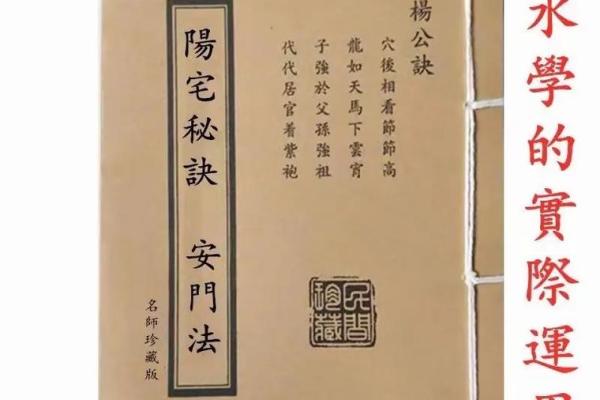 水學的實際運
楊公訣
穴後相看節節高
龍如天馬下雲宵
子強於父孫強祖
代代居官着紫袍
民間珍藏
陽宅秘訣 安門法
名師珍藏版